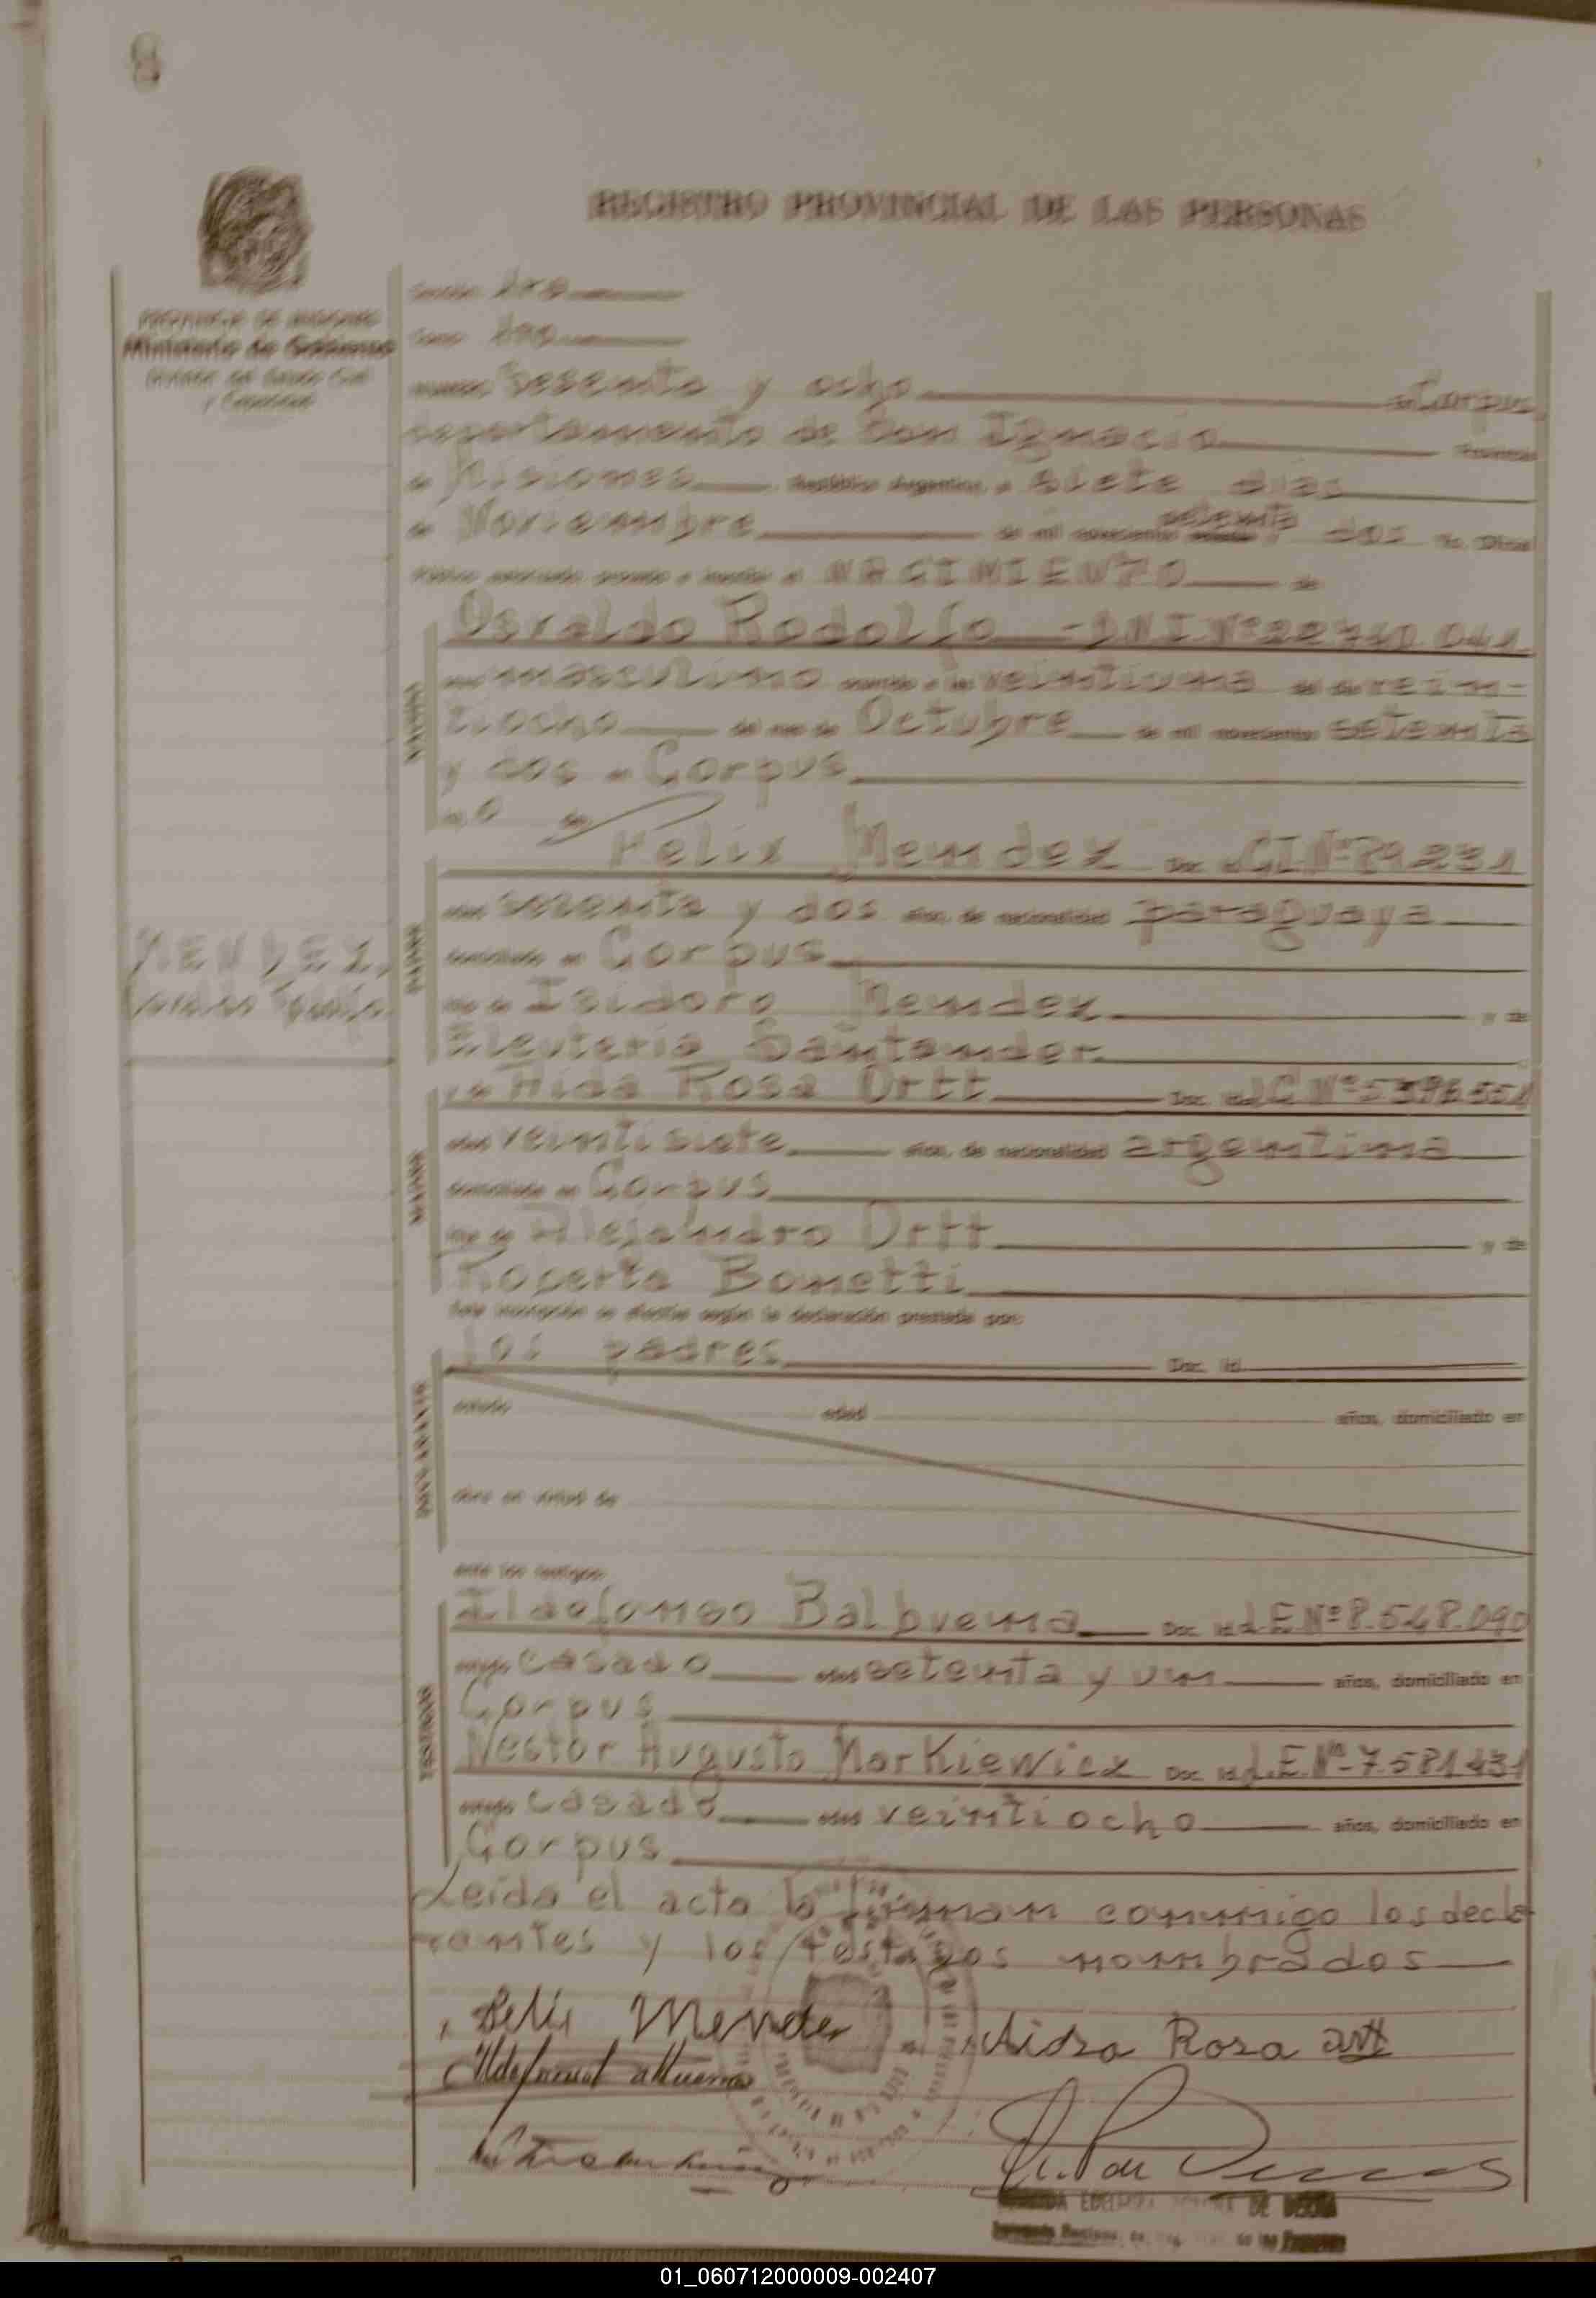 8
REGISTRO PROVINCIAL DE LAS PERSONAS
PROVINCIA DE MISIONES
Ministerio de Gobierno
Sección 1ra
Tomo 1ro
Número Sesenta y ocho en Corpus
departamento de San Ignacio Provincia
de Misiones República Argentina, a siete dias
de Noviembre de mil novecientos setenta y dos Yo, Oficial
Público autorizado procedo a inscribir el NACIMIENTO de
Osvaldo Rodolfo - DNI Nº 22.740.041
sexo masculino ocurrido a las veintiuna del día vein-
tiocho del mes de Octubre de mil novecientos setenta
y dos en Corpus
hijo de
Felix Mendez Doc. Id. CI Nº 89.231
edad sesenta y dos años, de nacionalidad paraguaya
domiciliado en Corpus
hijo de Isidoro Mendez y de
Eleuteria Santander
MENDEZ,
Osvaldo Rodolfo
y de Aida Rosa Ortt Doc. Id. LC Nº 5.396.551
edad veintisiete años, de nacionalidad argentina
domiciliada en Corpus
hija de Alejandro Ortt y de
Roberta Bonetti
Esta inscripción se efectúa según la declaración prestada por:
los padres Doc. Id.
estado edad años, domiciliado en
obra en virtud de
ante los testigos:
Ildefonso Balbuena Doc. Id. L.E. Nº 8.548.090
estado casado edad setenta y un años, domiciliado en
Corpus
Nestor Augusto Markiewicz Doc. Id. L.E. Nº 7.581.431
estado casado edad veintiocho años, domiciliado en
Corpus
Leída el acta la firman conmigo los decla
rantes y los testigos nombrados
Felix Mendez Aidra Rosa Ortt
01_060712000009-002407